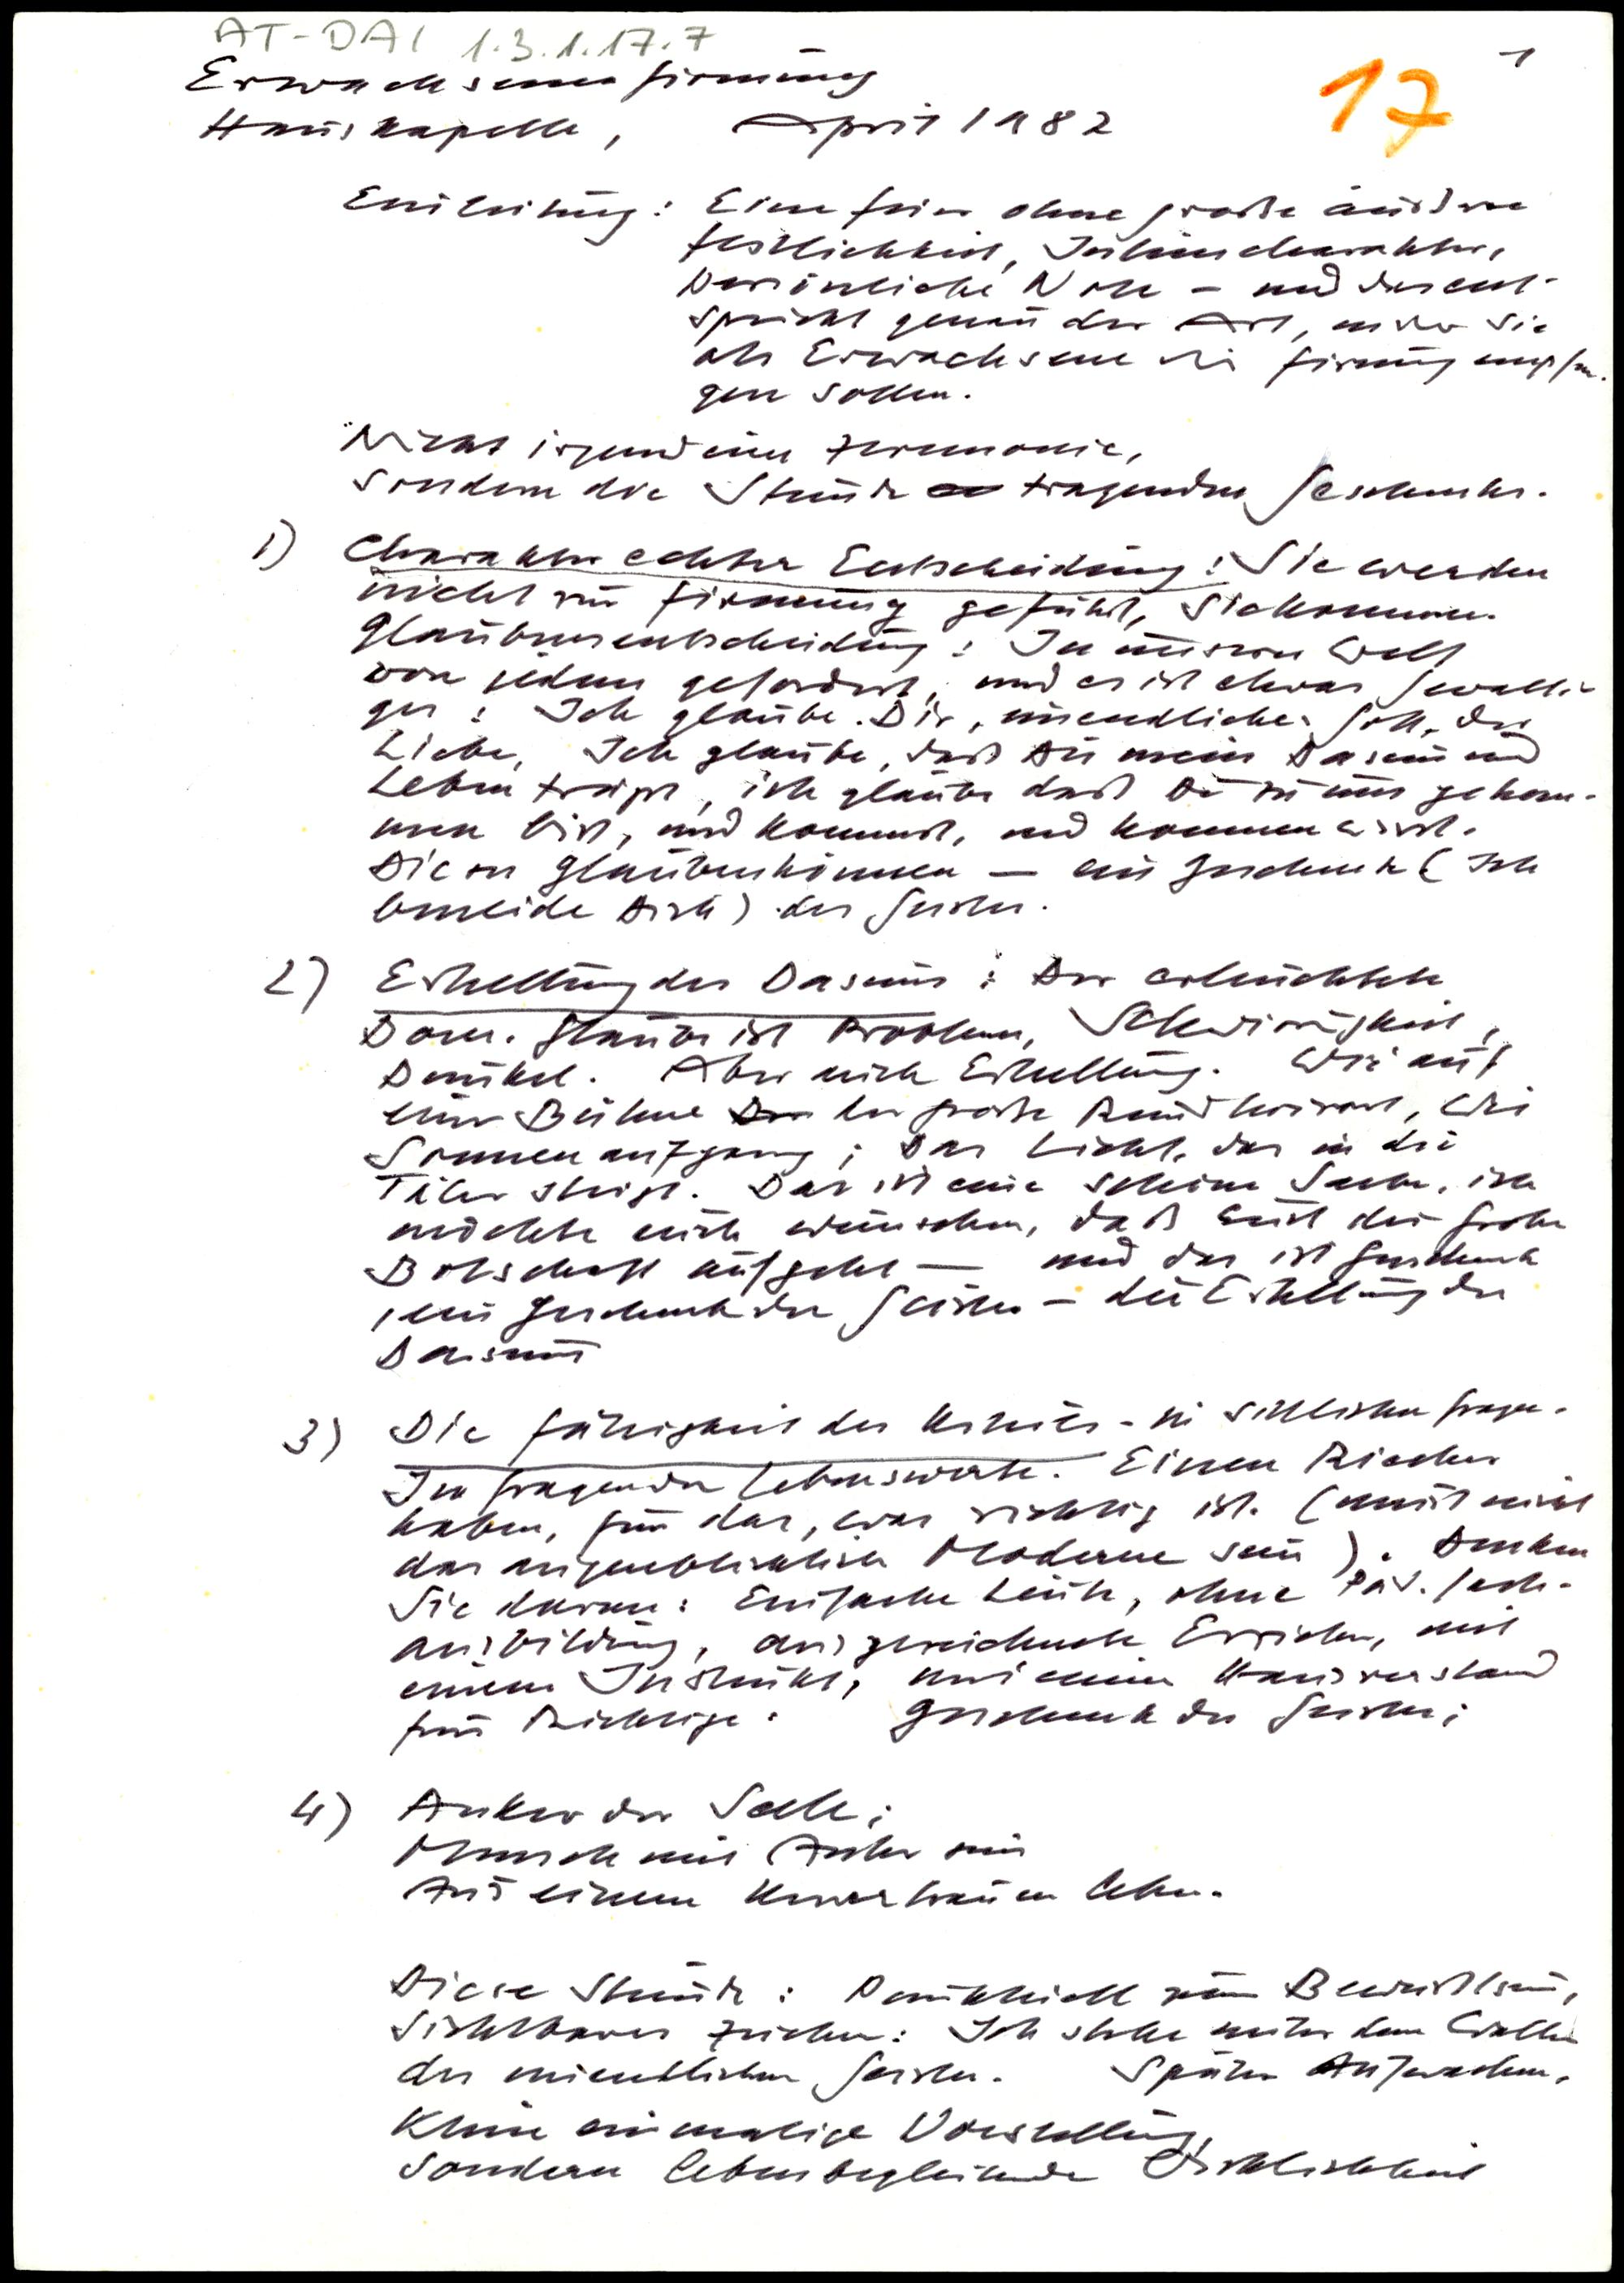 AT-DAI 1.3.1.17.7
1
17
Erwachsenenfirmung
Hauskapelle, April 1982
Einleitung: Eine Feier ohne große äußere
Festlichkeit,
persönliche Note – und das ent-
spricht genau der Art, in der Sie
als Erwachsene die Firmung empfan-
gen sollen.
Nicht irgendeine Zeremonie,
sondern die Stunde tragenden Geschenkes.
1) Charakter echter Entscheidung: Sie werden
nicht zur Firmung geführt, Sie kommen.
Glaubensentscheidung: In unserer Welt
von jedem gefordert, und es ist etwas Gewalti-
ges: Ich glaube Dir, unendlicher Gott, der
Liebe, Ich glaube, daß Du mein Dasein und
Leben trägst, ich glaube daß Du zu uns gekom-
men bist, und kommst, und kommen wirst.
Dieses Glaubenkönnen – ein Geschenk (Ich
beneide Dich) des Geistes.
2) Erhellung des Daseins: Der erleuchtete
Dom. Glaube ist Problem, Schwierigkeit,
Dunkel. Aber auch Erhellung. Wie auf
einer Bühne der große Rundhorizont, Wie
Sonnenaufgang; Das Licht, das in die
Täler steigt. Das ist eine schöne Sache, ich
möchte euch wünschen, daß euch die große
Botschaft aufgeht – und das ist Geschenk
, ein Geschenk des Geistes – die Erhellung des
Daseins
3) Die Fähigkeit des Urteils – in sittlichen Fragen.
In Fragen der Lebenswerte. Einen Riecher
haben, für das, was richtig ist. (muß nicht
das augenblicklich Moderne sein). Denken
Sie daran: Einfache Leute, ohne Päd. Fach-
ausbildung, ausgezeichnete Erzieher, mit
einem Instinkt, mit einem Hausverstand
fürs Richtige. Geschenk des Geistes;
4) Anker der Seele;
Mensch mit Anker sein
Aus einem Urvertrauen leben.
Diese Stunde: Punktuell zum Bewußtsein,
Sichtbares Zeichen: Ich stehe unter dem Walten
des unendlichen Geistes. Später Aufwachen.
Keine einmalige Vorstellung,
sondern lebensbegleitende Wirklichkeit